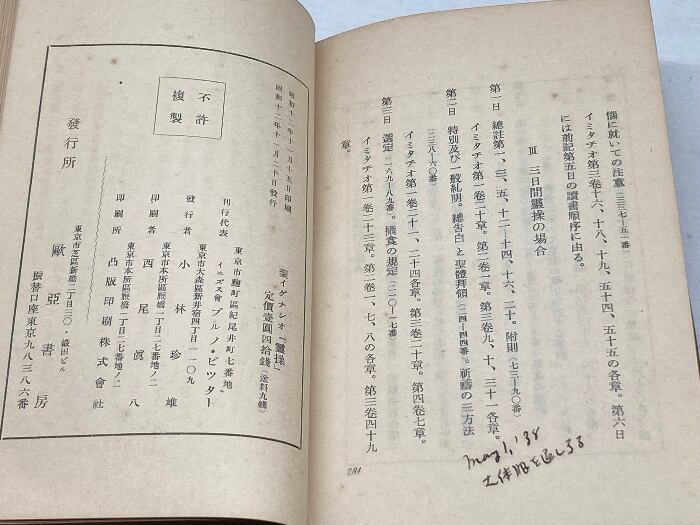 惱に就いての注意(三三七-五一番)
イミタチオ第三卷十六、十八、十九、五十四、五十五の各章。第六日
には前記第五日の讀書順序に由る。
Ⅲ 三日間靈操の場合
第一日 總註第一、三、五、十二-十四、十六、二十。附則(七三-九〇番)
イミタチオ第一卷二十章。第二卷一章。第三卷九、十、三十一各章。
第二日 特別及び一般糺明。總吿白と聖體拜領(二四-四四番)。祈禱の三方法
(二三八-六〇番)
イミタチオ第一卷二十一、二十四各章。第三卷二十章。第四卷七章。
第三日 選定(一六九-八九番)。攝食の規定(二一〇-一七番)
イミタチオ第一卷二十三章。第二卷一、七、八の各章。第三卷四十九
章。
284
May 1, '38
聖イグナシオ「靈操」
定價壹圓四拾錢(送料九錢)
昭和十二年十一月十五日印刷
昭和十二年十一月二十日發行
不許
複製
東京市麴町區紀尾井町七番地
刊行代表 イエズス會 ブルノ・ビッター
東京市大森區新井宿四丁目一一〇九
發行者 小林珍雄
東京市本所區厩橋一丁目二七番地ノ二
印刷者 西尾眞八
東京市本所區厩橋一丁目二七番地ノ二
印刷所 凸版印刷株式會社
東京市芝區新橋二丁目三〇・織田ビル
發行所 歐亞書房
振替口座東京九八三八六番